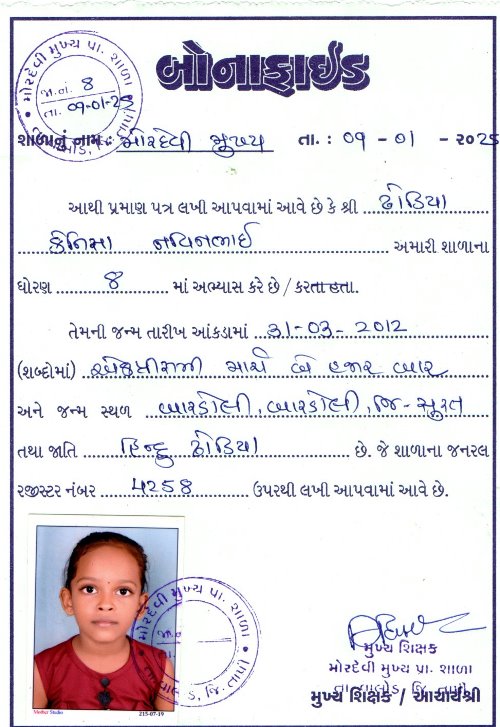 મોરદેવી મુખ્ય પ્રા. શાળા
જા.નં. 8
તા. 09-01-25
બોનાફાઇડ
શાળાનું નામ : મોરદેવી મુખ્ય તા. : ૦૧ - ૦૧ - ૨૦૨૫
આથી પ્રમાણ પત્ર લખી આપવામાં આવે છે કે શ્રી ઢોડિયા
નવિનભાઈ અમારી શાળાના
ધોરણ 8 માં અભ્યાસ કરે છે / કરતા હતા.
તેમની જન્મ તારીખ આંકડામાં 31-03-2012
(શબ્દોમાં) એકત્રીસમી માર્ચ બે હજાર બાર
અને જન્મ સ્થળ બારડોલી, બારડોલી, જિ-સુરત
તથા જાતિ હિન્દુ ઢોડિયા છે. જે શાળાના જનરલ
રજીસ્ટર નંબર 4258 ઉપરથી લખી આપવામાં આવે છે.
મોરદેવી મુખ્ય પ્રા. શાળા
જા.નં.
તા. વાલોડ, જિ. તાપી
Mother Studio 215-07-19
મુખ્ય શિક્ષક
મોરદેવી મુખ્ય પ્રા. શાળા
તા. વાલોડ, જિ. તાપી
મુખ્ય શિક્ષક / આચાર્યશ્રી